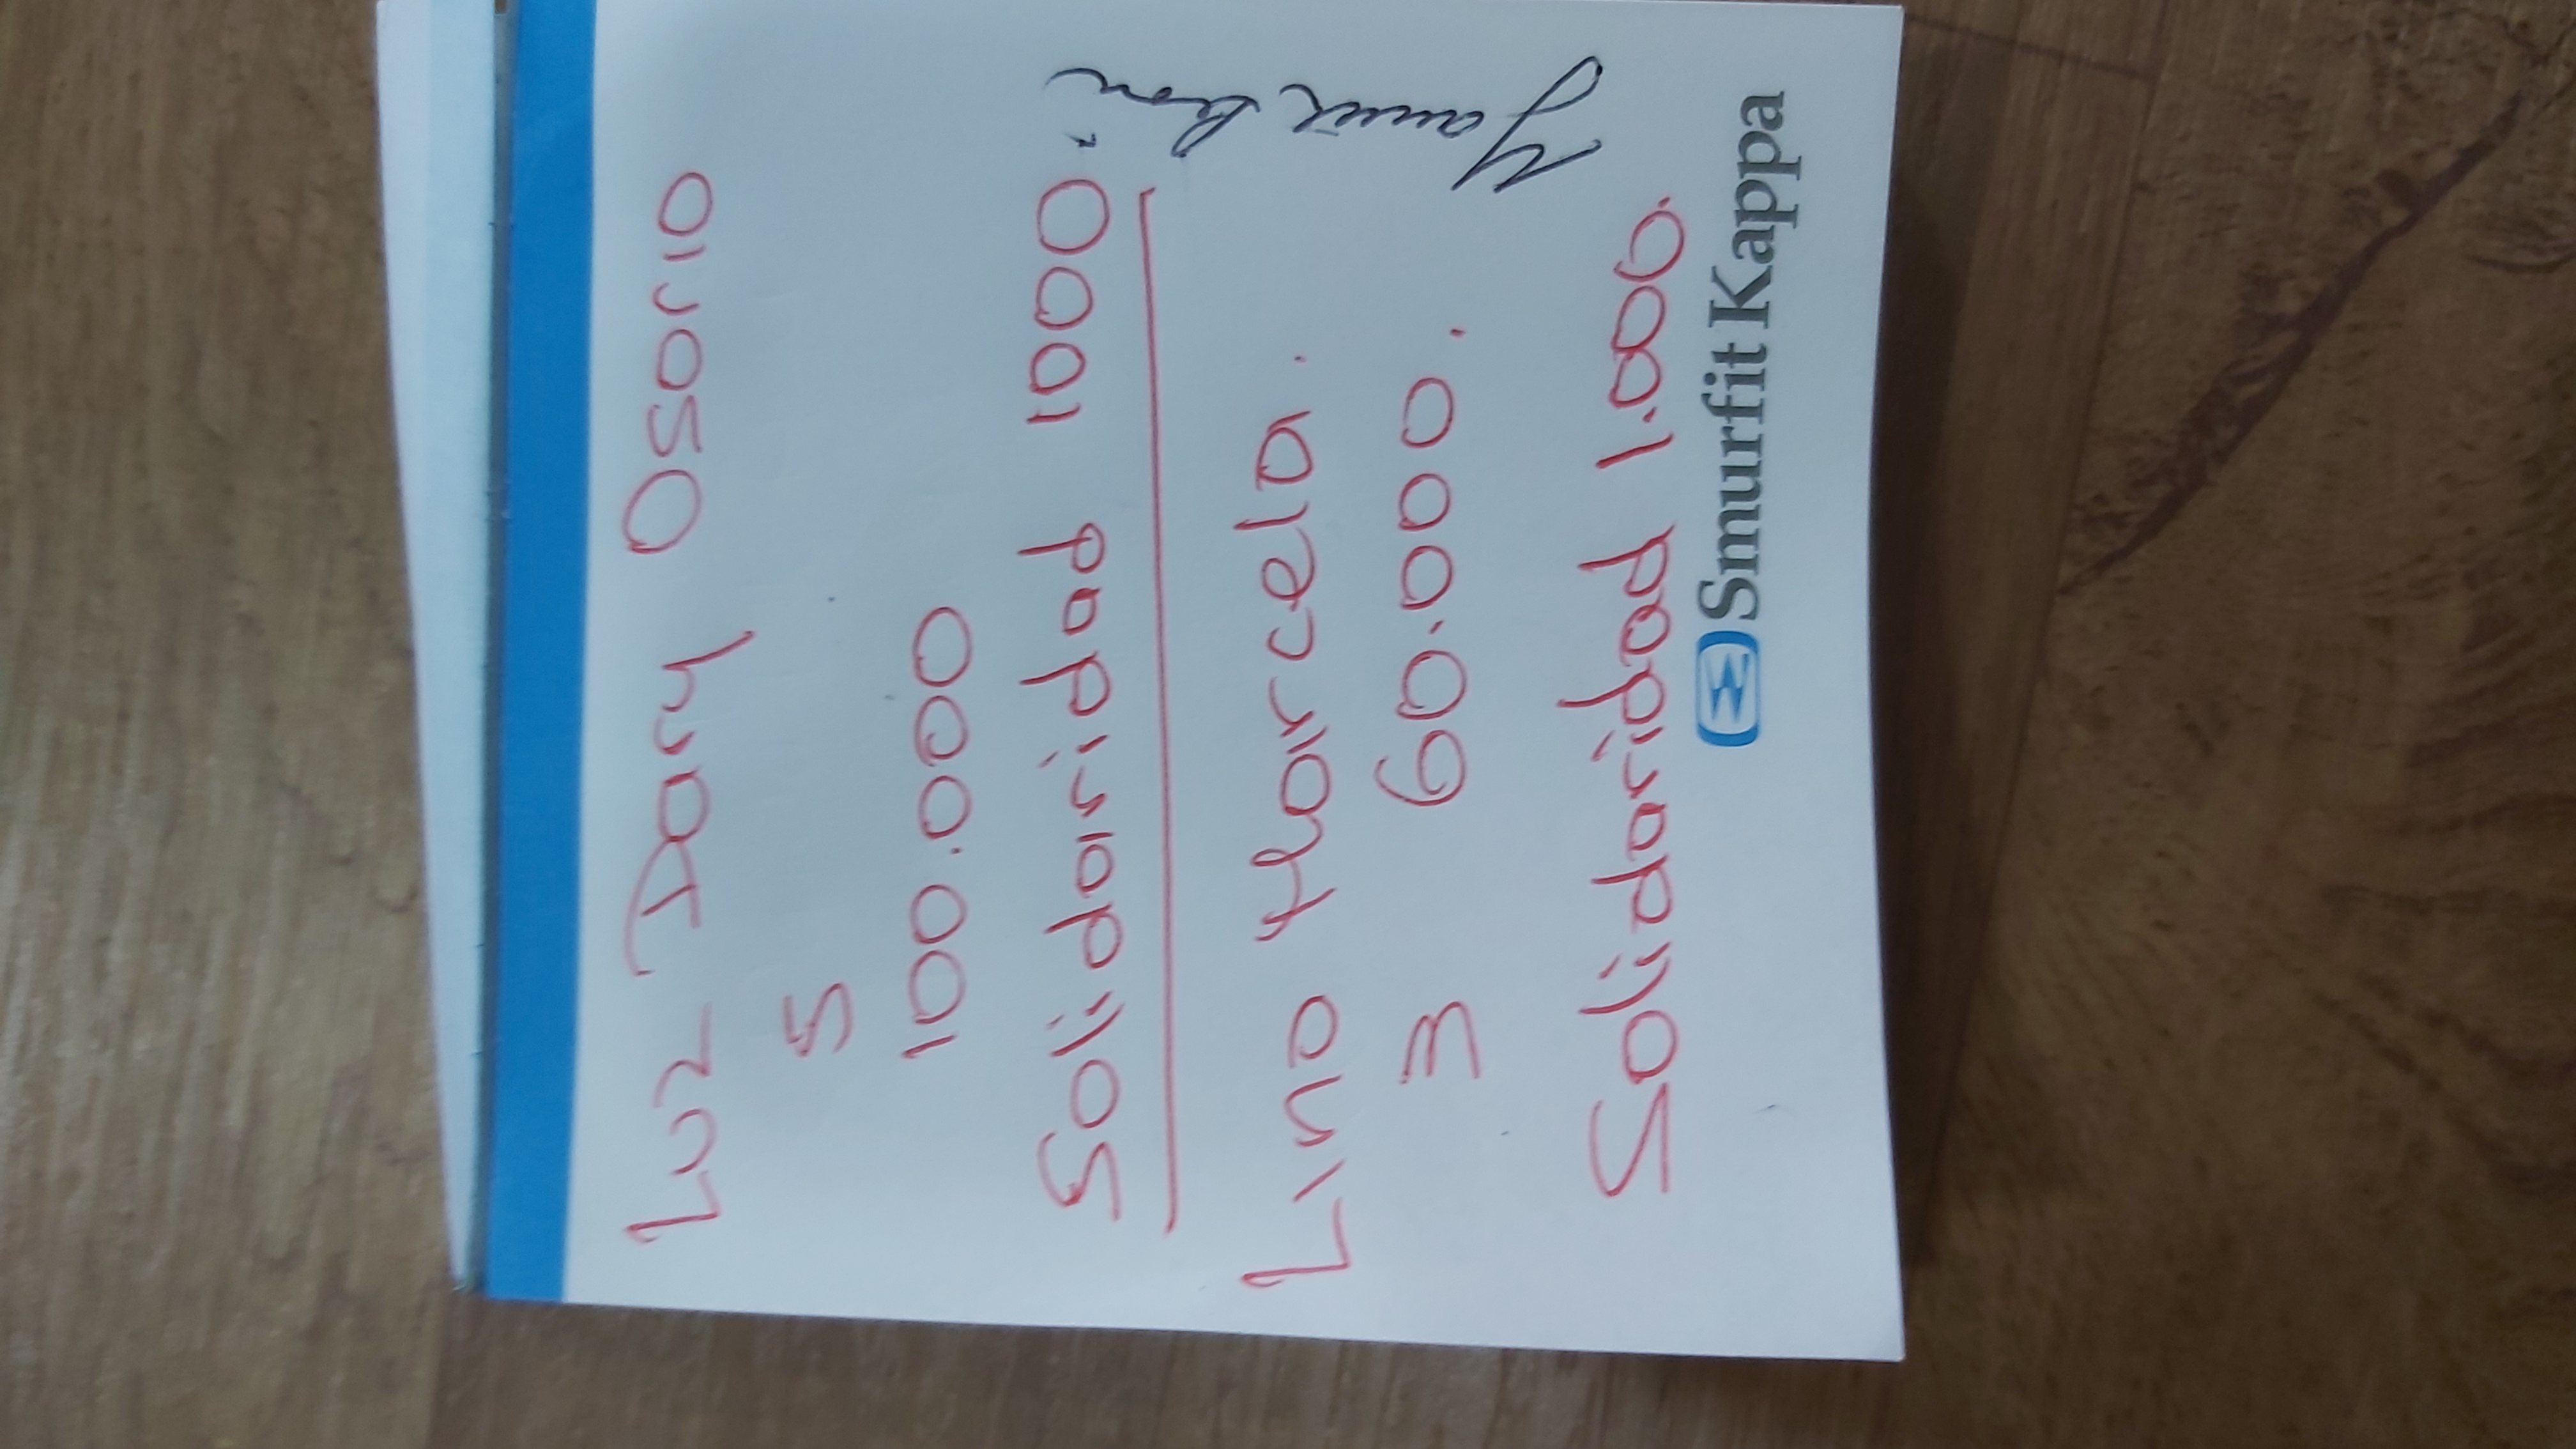 Luz Dary Osorio
5
100.000
Solidaridad 1000.
Lina Marcela.
3 60.000.
Solidaridad 1.000.
Smurfit Kappa